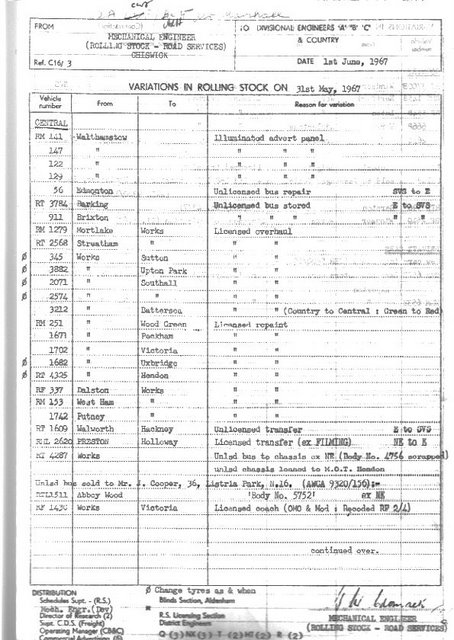 FROM
MECHANICAL ENGINEER
(ROLLING STOCK - ROAD SERVICES)
CHISWICK
Ref. C16/ 3
TO DIVISIONAL ENGINEERS 'A' 'B' 'C'
& COUNTRY
DATE 1st June, 1967
VARIATIONS IN ROLLING STOCK ON 31st May, 1967
Vehicle number From To Reason for variation
CENTRAL
RM 141 Walthamstow Illuminated advert panel
147 " " " "
122 " " " "
129 " " " "
56 Edmonton Unlicensed bus repair SVS to E
RT 3784 Barking Unlicensed bus stored E to SVS
911 Brixton " " " " "
RM 1279 Mortlake Works Licensed overhaul
RT 2568 Streatham " " "
Ø 345 Works Sutton " "
Ø 3882 " Upton Park " "
Ø 2071 " Southall " "
Ø 2574 " " " "
3212 " Battersea " " (Country to Central : Green to Red)
RM 251 " Wood Green Licensed repaint
1671 " Peckham " "
1702 " Victoria " "
Ø 1682 " Uxbridge " "
Ø RT 4325 " Hendon " "
RF 337 Dalston Works " "
RM 153 West Ham " " "
1742 Putney " " "
RT 1609 Walworth Hackney Unlicensed transfer E to SVS
RML 2620 PRESTON Holloway Licensed transfer (ex FILMING) NE to E
RT 4287 Works Unlsd bus to chassis ex NE (Body No. 4756 scrapped)
unlsd chassis loaned to M.O.T. Hendon
Unlsd bus sold to Mr. J. Cooper, 36, Listria Park, N.16. (AWGA 9320/156):-
RTL1511 Abbey Wood 'Body No. 5752' ex NE
RF 1430 Works Victoria Licensed coach (OMO & Mod : Recoded RF 2/4)
continued over.
DISTRIBUTION
Schedules Supt. - (R.S.)
Mech. Engr. (Dev)
Director of Research (2)
Supt. C.D.S. (Freight)
Operating Manager (CB&C)
Commercial Advertising (6)
Ø Change tyres as & when
Blinds Section, Aldenham
R.S. Licensing Section
District Engineers
MECHANICAL ENGINEER
(ROLLING STOCK - ROAD SERVICES)